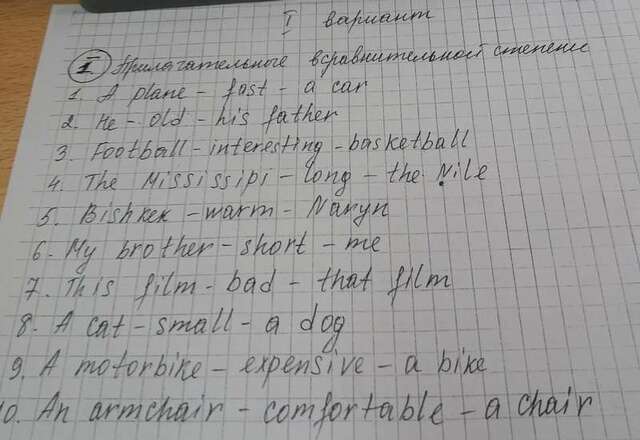 I вариант
I Прилагательное в сравнительной степени
1. A plane - fast - a car
2. He - old - his father
3. Football - interesting - basketball
4. The Mississipi - long - the Nile
5. Bishkek - warm - Naryn
6. My brother - short - me
7. This film - bad - that film
8. A cat - small - a dog
9. A motorbike - expensive - a bike
10. An armchair - comfortable - a chair